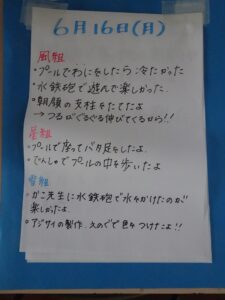 6月16日(月)
風組
・プールでわにをしたら冷たかった
・水鉄砲で遊んで楽しかった
・朝顔の支柱をたてたよ
→つるがぐるぐる伸びてくるから!!
星組
・プールで座ってバタ足をしたよ
・でんしゃでプールの中を歩いたよ
雪組
・がこ先生に水鉄砲で水をかけたのが
楽しかったよ
・アジサイの製作、えのぐで色をつけたよ!!